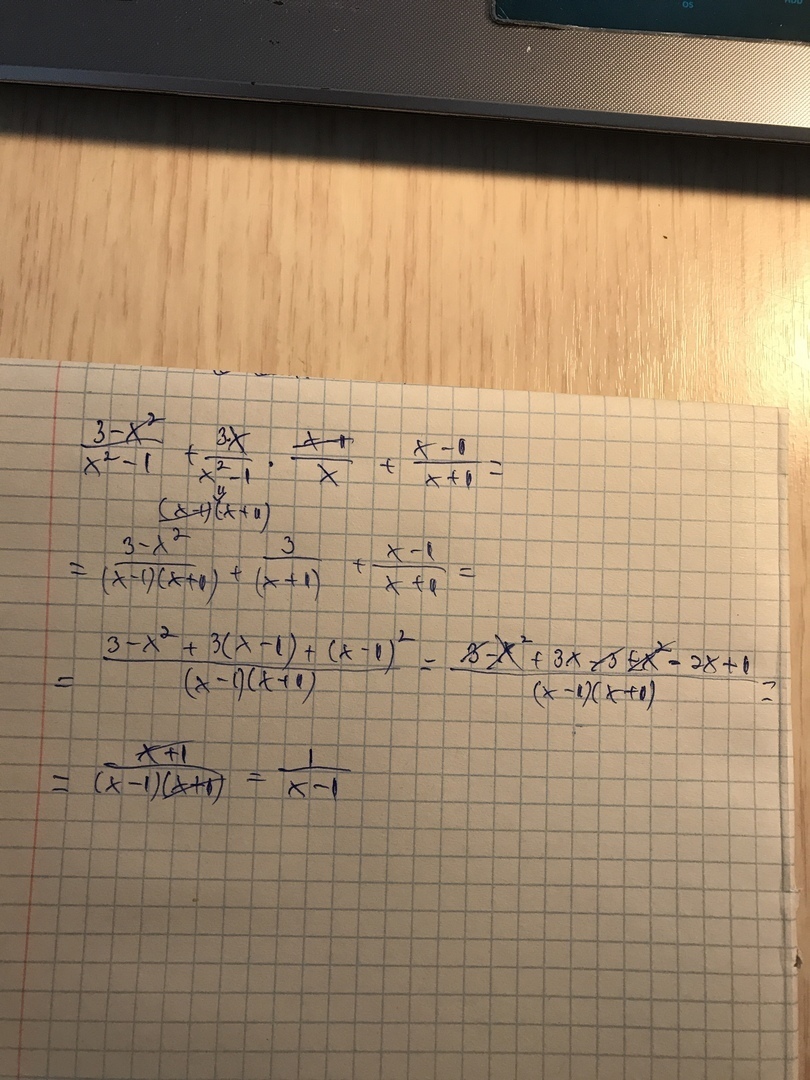 OS
(3-x²)/(x²-1) + 3x/(x²-1) · (x-1)/x + (x-1)/(x+1) =
(x-1)(x+1)
= (3-x²)/((x-1)(x+1)) + 3/(x+1) + (x-1)/(x+1) =
= (3-x²+3(x-1)+(x-1)²)/((x-1)(x+1)) = (3-x²+3x-3+x²-2x+1)/((x-1)(x+1)) =
= (x+1)/((x-1)(x+1)) = 1/(x-1)